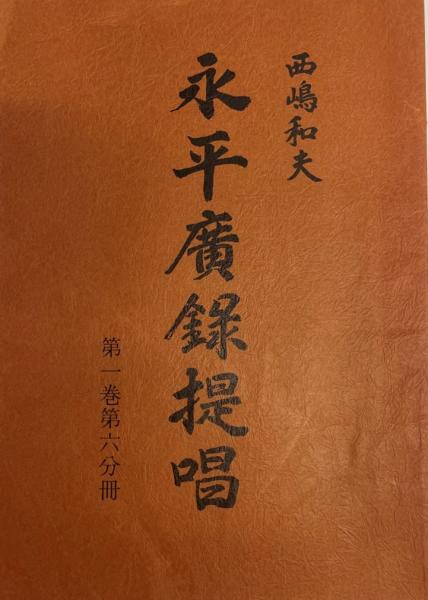 西嶋和夫
永平廣錄提唱
第一巻第六分冊